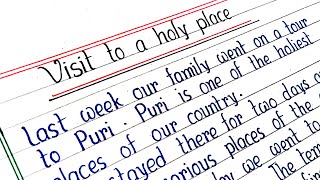 Visit to a holy place
Last week our family went on a tour
to Puri. Puri is one of the holiest
places of our country.
stayed there for two days a
rious places of the
we went to
The tem